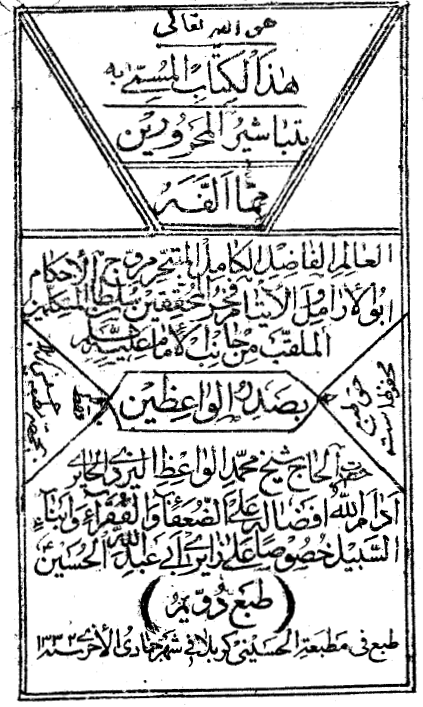 هو الله تعالى
هذا الكتاب المسمى به
بتباشير المحرورين
مما الفه
العالم الفاضل الكامل المتبحر مروج الاحكام
ابو الارامل والايتام فخر المحققين سلطان المتكلمين
الملقب من جانب الامام عليه السلام
بصدر الواعظين
فقط
حق طبع
محفوظ است
حضرت الحاج شيخ محمد الواعظ اليزدي الحايري
ادام الله افضاله على الضعفاء والفقراء وابناء
السبيل خصوصا على زايري ابي عبد الله الحسين ع
(طبع دويم)
طبع في مطبعة الحسيني كربلا في شهر جمادى الاخرى سنه ١٣٣٢